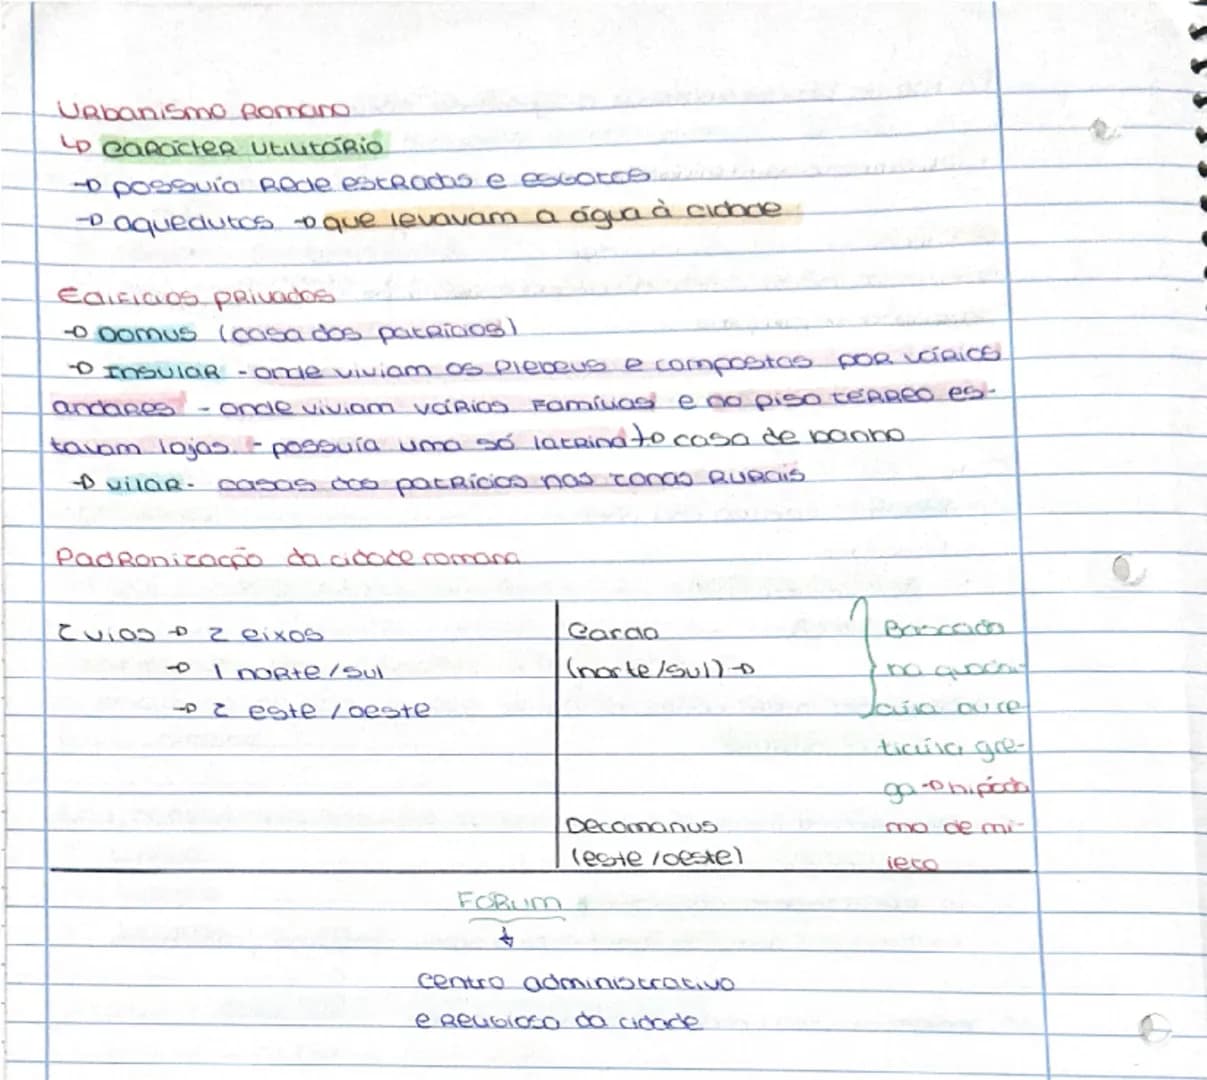 Urbanismo Romano
↳ Carácter utilitário
→ possuía Rede estradas e esgotos
→ aquedutos → que levavam a água à cidade
Edifícios privados
→ Domus (casa dos patrícios)
→ Insular - onde viviam os plebeus e compostas por vários
andares - onde viviam várias famílias e ao piso térreo es-
tavam lojas. - possuía uma só latrina → casa de banho
→ vilar - casas dos patrícios nas zonas rurais
Padronização da cidade romana
2 vias → 2 eixos
→ 1 norte/sul
→ 2 este/oeste
Cardo
(norte/sul) →
Decomanus
(este/oeste)
Baseado
na quadrí-
cula ou re
ticula gre-
ga → hipóda
mo de mi-
leto
Fórum
↓
centro administrativo
e religioso da cidade